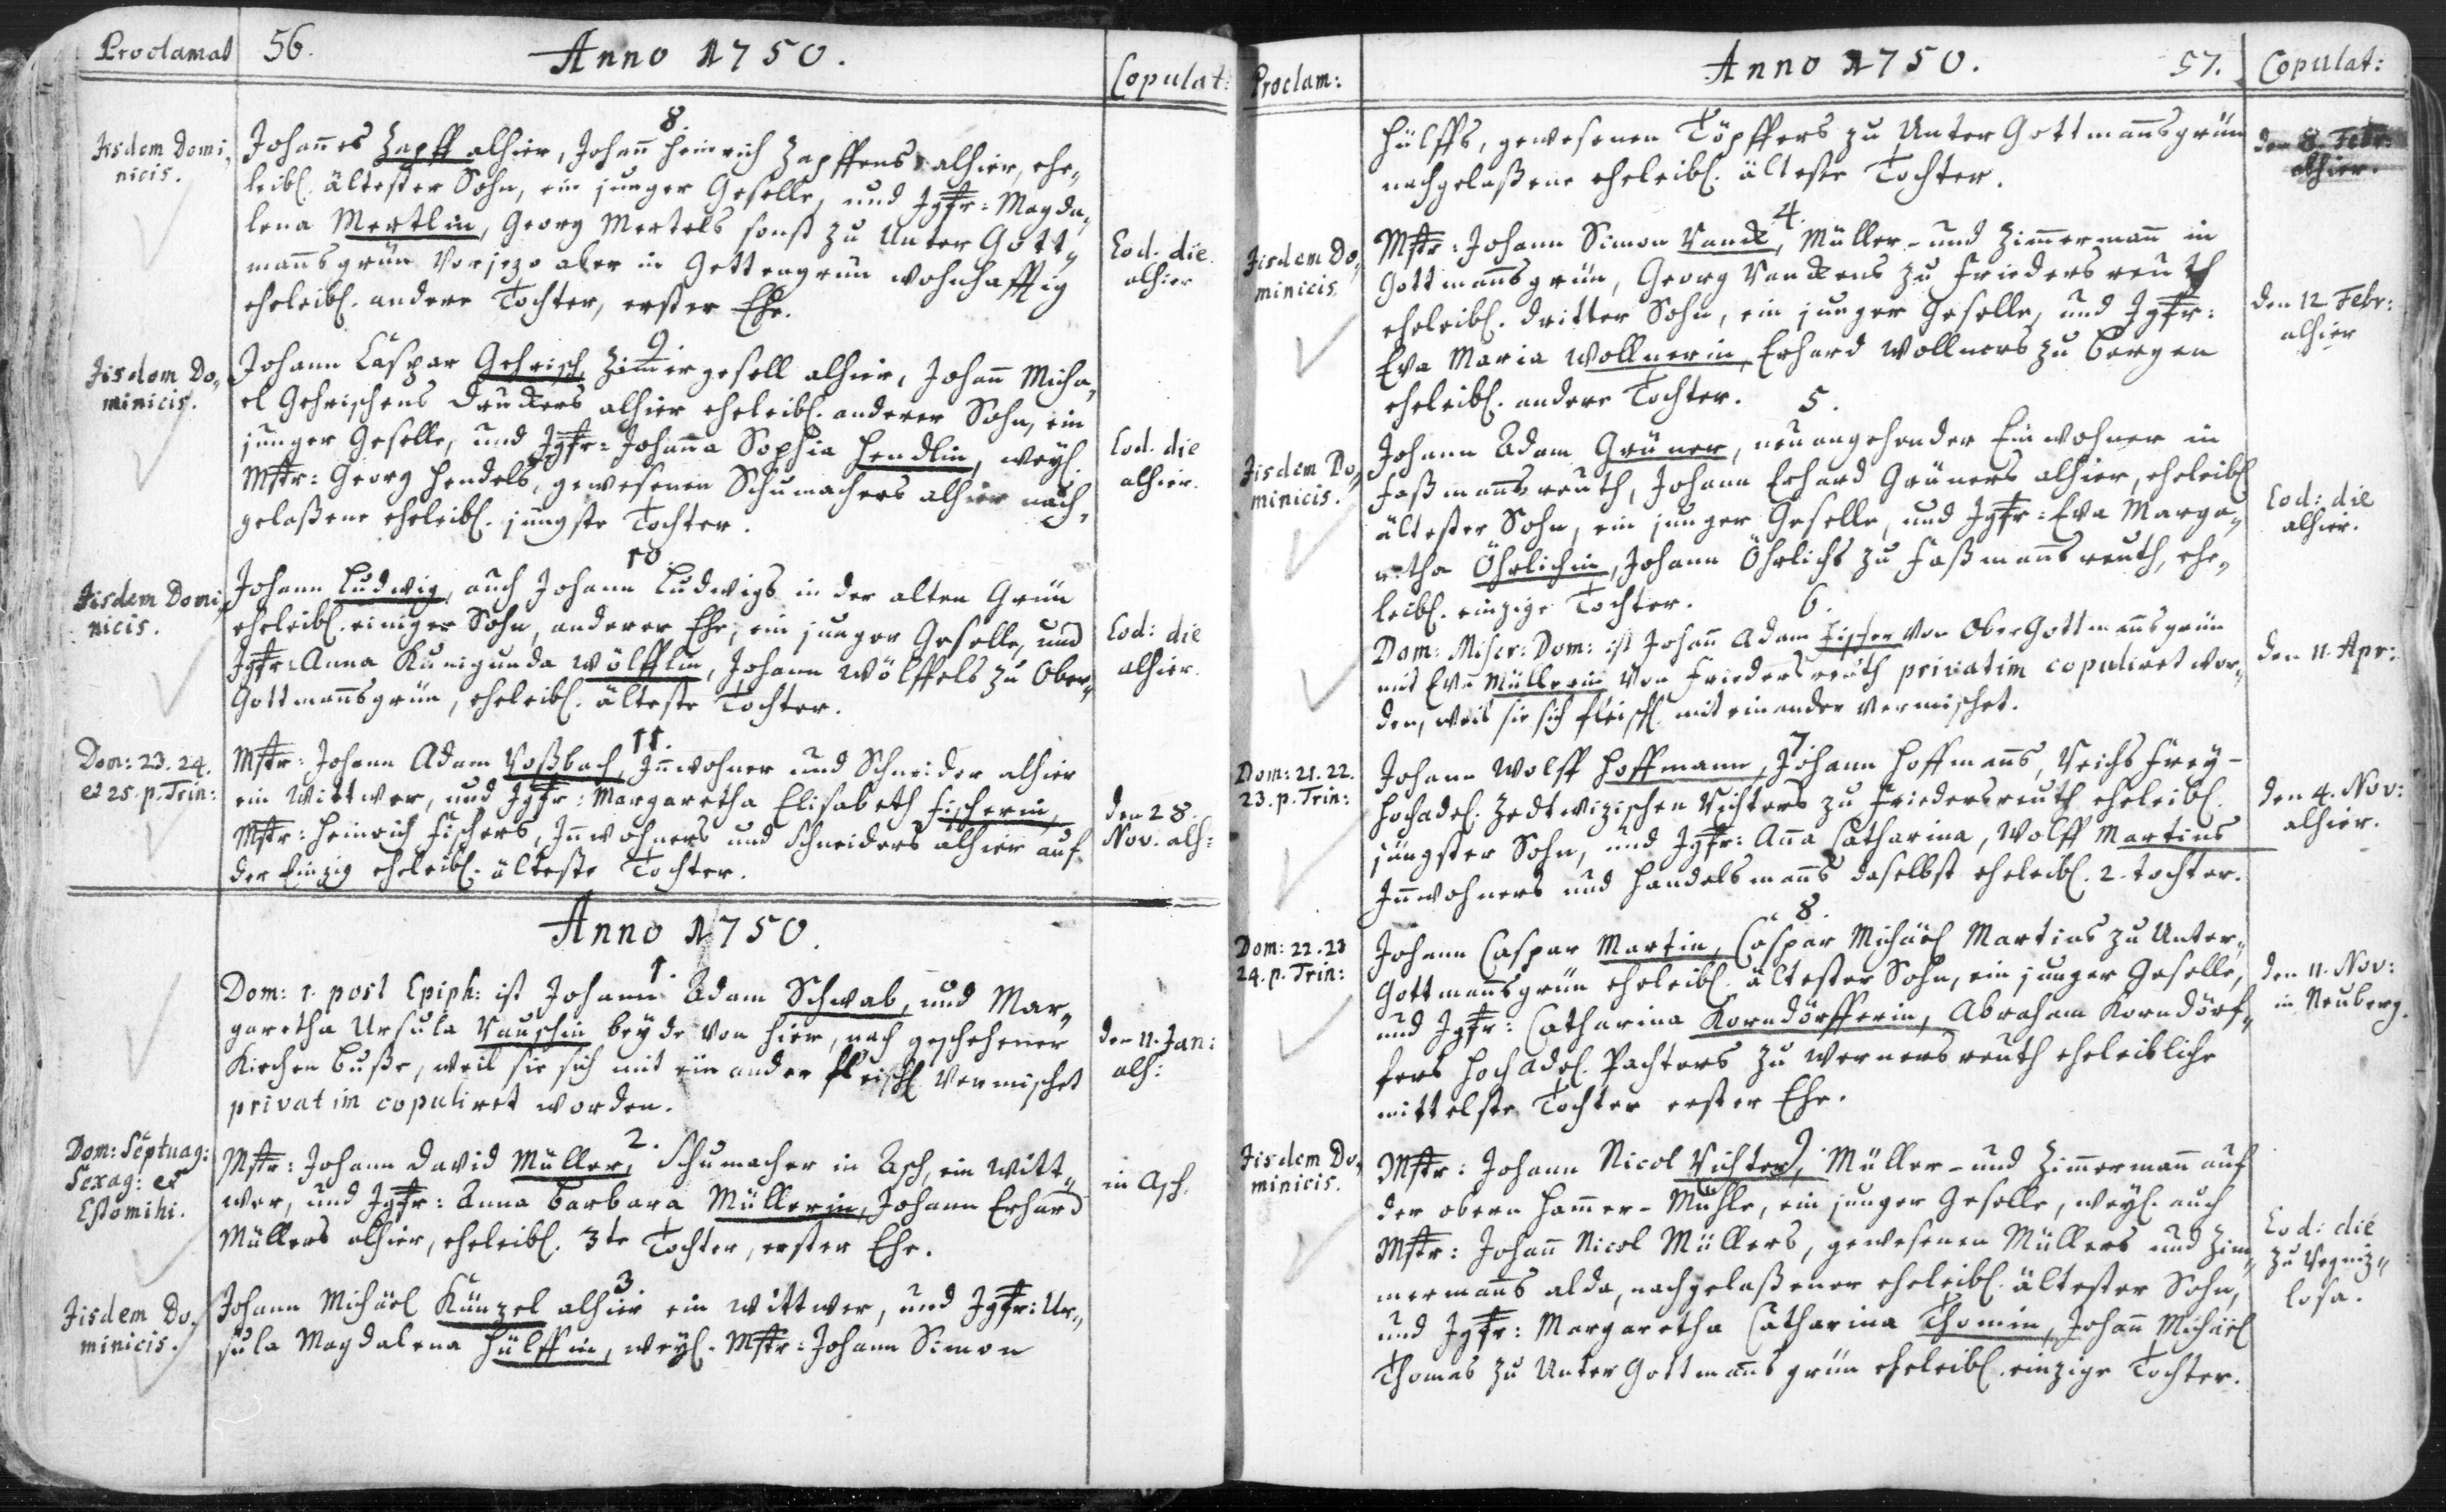 Proclamat 56. Anno 1750. Copulat:
8.
Iisdem Domi,, Johannes Zapff alhier, Johann Heinrich Zapffens alhier, ehe,,
nicis. leibl. ältester Sohn, ein junger Geselle, und Jgfr: Magda,,
lena Mertlin, Georg Mertels sonst zu Unter Gott,, Eod. die
mannsgrün vorjezo aber in Gettengrün wohnhafftig alhier
eheleibl. andere Tochter, erster Ehe.
9.
Iisdem Do,, Johann Caspar Gehrisch, Zimmergesell alhier, Johann Micha,,
minicis. el Gehrischens Druckers alhier eheleibl. anderer Sohn, ein
junger Geselle, und Jgfr: Johanna Sophia Hendlin, weyl. Eod. die
Mstr: Georg Hendels, gewesenen Schumachers alhier nach, alhier.
gelaßene eheleibl. jüngste Tochter.
10.
Iisdem Domi,, Johann Ludwig, auch Johann Ludwigs in der alten Grün
nicis. eheleibl. einiger Sohn, anderer Ehe, ein junger Geselle, und Eod: die
Jgfr: Anna Kunigunda Wölfflin, Johann Wölffels zu Ober,, alhier.
Gottmannsgrün, eheleibl. älteste Tochter.
11.
Dom: 23. 24. Mstr: Johann Adam Voßbach, Innwohner und Schneider alhier
et 25. p. Trin: ein Wittwer, und Jgfr: Margaretha Elisabeth Fischerin, den 28.
Mstr: Heinrich Fischers, Innwohners und Schneiders alhier auf Nov. alh:
der Einzig eheleibl. älteste Tochter.
Anno 1750.
1.
Dom: 1. post Epiph: ist Johann Adam Schwab, und Mar,,
garetha Ursula Vauschin beyde von hier, nach geschehener den 11. Jan:
Kirchen Buße, weil sie sich mit einander fleischl. vermischet alh:
privatim copuliret worden.
2.
Dom: Septuag: Mstr: Johann David Müller, Schumacher in Asch, ein Witt,,
Sexag: et wer, und Jgfr: Anna Barbara Müllerin, Johann Erhard in Asch.
Estomihi. Müllers alhier, eheleibl. 3te Tochter, erster Ehe.
3.
Iisdem Do,, Johann Michael Künzel alhier ein Wittwer, und Jgfr: Ur,,
minicis. sula Magdalena Hülffin, weyl. Mstr: Johann Simon
Proclam: Anno 1750. 57. Copulat:
Hülffs, gewesenen Töpffers zu Unter Gottmannsgrün den 8. Febr.
nachgelaßene eheleibl. älteste Tochter. alhier.
4.
Iisdem Do,, Mstr: Johann Simon Vanck, Müller- und Zimmermann in
minicis. Gottmannsgrün, Georg Vanckens zu Friedersreuth
eheleibl. dritter Sohn, ein junger Geselle, und Jgfr: den 12. Febr:
Eva Maria Wollnerin, Erhard Wollners zu Bergen alhier
eheleibl. andere Tochter.
5.
Iisdem Do,, Johann Adam Grüner, neuangehender Einwohner in
minicis. Faßmannsreuth, Johann Erhard Grüners alhier, eheleibl.
ältester Sohn, ein junger Geselle, und Jgfr: Eva Marga,, Eod: die
retha Öhrlichin, Johann Öhrlichs zu Faßmannsreuth, ehe,, alhier.
leibl. einzige Tochter.
6.
Dom: Miser: Dom: ist Johann Adam Fischer von Ober Gottmannsgrün
mit Eva Müllerin von Friedersreuth privatim copuliret wor,, den 11. Apr:
den, weil sie sich fleischl. mit einander vermischet.
7.
Dom: 21. 22. Johann Wolff Hoffmann, Johann Hoffmanns, Reichs Frey-
23. p. Trin: Hochadel. Zedtwizischen Richters zu Friedersreuth eheleibl. den 4. Nov:
jüngster Sohn, und Jgfr: Anna Catharina, Wolff Martins alhier.
Innwohners und Handelsmanns daselbst eheleibl. 2. Tochter.
8.
Dom: 22. 23 Johann Caspar Martin, Caspar Michael Martins zu Unter,,
24. p. Trin: Gottmannsgrün eheleibl. ältester Sohn, ein junger Geselle, den 11. Nov:
und Jgfr: Catharina Korndörfferin, Abraham Korndörf,, in Neuberg.
fers Hochadel. Pachters zu Wernersreuth eheleibliche
mittelste Tochter erster Ehe.
9.
Iisdem Do,, Mstr: Johann Nicol Richter, Müller- und Zimmermann auf
minicis. der obern Hammer-Mühle, ein junger Geselle, weyl. auch
Mstr: Johann Nicol Müllers, gewesenen Müllers und Zim,, Eod: die
mermanns alda, nachgelaßener eheleibl. ältester Sohn, zu Regniz,,
und Jgfr: Margaretha Catharina Thomin, Johann Michael losa.
Thomas zu Unter Gottmannsgrün eheleibl. einzige Tochter.